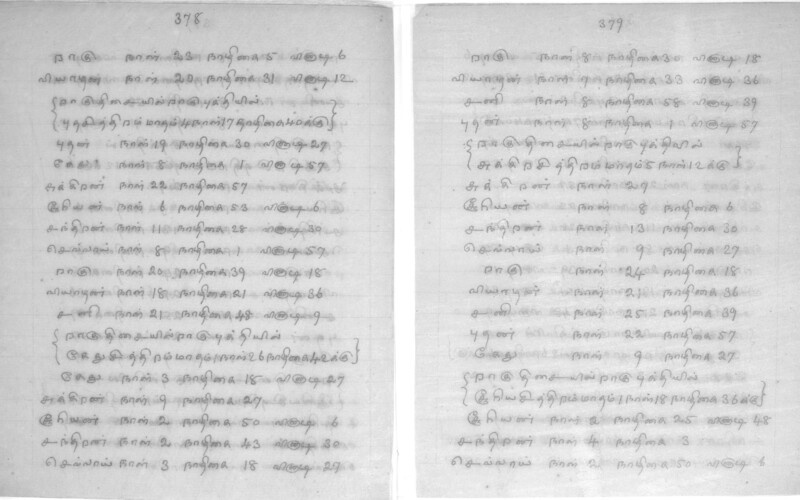 378
ராகு நாள் 23 நாழிகை 5 வினாடி 6
வியாழன் நாள் 20 நாழிகை 31 வினாடி 12
ராகுதிசையில் ராகு புக்தியில்
புதசித்திரம் மாதம் 4 நாள் 17 நாழிகை 42க்கு
புதன் நாள் 19 நாழிகை 30 வினாடி 27
கேது நாள் 8 நாழிகை 1 வினாடி 57
சுக்கிரன் நாள் 22 நாழிகை 57
சூரியன் நாள் 6 நாழிகை 53 வினாடி 6
சந்திரன் நாள் 11 நாழிகை 28 வினாடி 30
செவ்வாய் நாள் 8 நாழிகை 1 வினாடி 57
ராகு நாள் 20 நாழிகை 39 வினாடி 18
வியாழன் நாள் 18 நாழிகை 21 வினாடி 36
சனி நாள் 21 நாழிகை 48 வினாடி 9
ராகுதிசையில் ராகு புக்தியில்
கேது சித்திரம் மாதம் 1 நாள் 26 நாழிகை 42க்கு
கேது நாள் 3 நாழிகை 18 வினாடி 27
சுக்கிரன் நாள் 9 நாழிகை 27
சூரியன் நாள் 2 நாழிகை 50 வினாடி 6
சந்திரன் நாள் 2 நாழிகை 43 வினாடி 30
செவ்வாய் நாள் 3 நாழிகை 18 வினாடி 27
379
ராகு நாள் 8 நாழிகை 30 வினாடி 18
வியாழன் நாள் 7 நாழிகை 33 வினாடி 36
சனி நாள் 8 நாழிகை 58 வினாடி 39
புதன் நாள் 8 நாழிகை 1 வினாடி 57
ராகுதிசையில் ராகு புக்தியில்
சுக்கிரசித்திரம் மாதம் 5 நாள் 12க்கு
சுக்கிரன் நாள் 27
சூரியன் நாள் 8 நாழிகை 6
சந்திரன் நாள் 13 நாழிகை 30
செவ்வாய் நாள் 9 நாழிகை 27
ராகு நாள் 24 நாழிகை 18
வியாழன் நாள் 21 நாழிகை 36
சனி நாள் 25 நாழிகை 39
புதன் நாள் 22 நாழிகை 57
கேது நாள் 9 நாழிகை 27
ராகுதிசையில் ராகு புக்தியில்
சூரியசித்திரம் மாதம் 1 நாள் 18 நாழிகை 36க்கு
சூரியன் நாள் 2 நாழிகை 25 வினாடி 48
சந்திரன் நாள் 4 நாழிகை 3
செவ்வாய் நாள் 2 நாழிகை 50 வினாடி 6